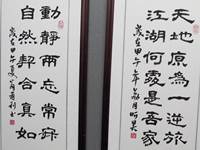 天地原為一逆旅
江湖何處是吾家
歲在甲午年
動靜兩忘常寂
自然契合真如
歲在甲午夏月